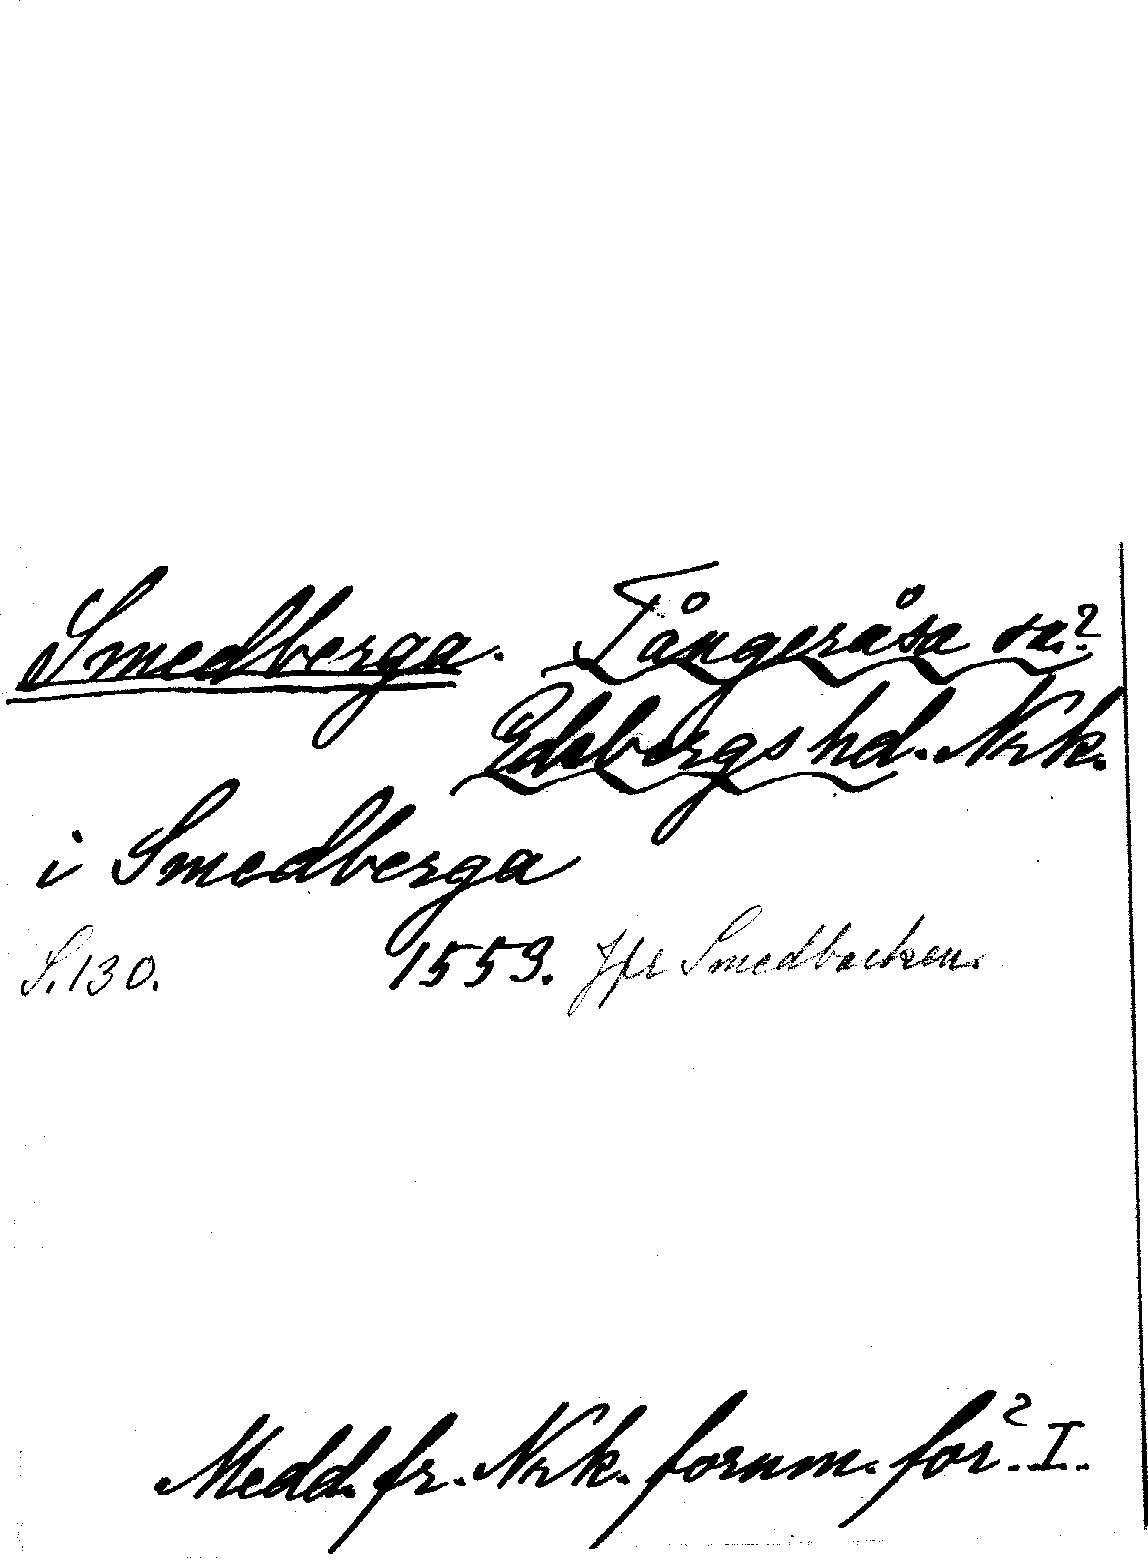 Smedberga. Tångeråsa sn?
Edsbergs hd. Nrk.
i Smedberga
S. 130. 1559. Jfr Smedbacken.
Medd. fr. Nrk. fornm. för. I.